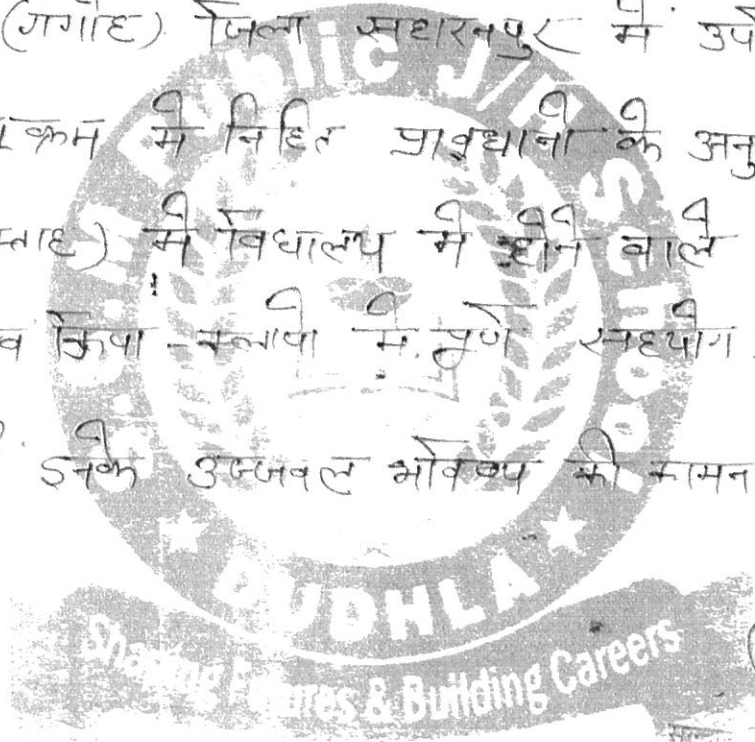 (गंगोह) जिला सहारनपुर में उप
क्रम में निहित प्रावधानो के अनु
प्ताह) में विधालय में होने वाले
व क्रिया-कलापो में पूर्ण सहयोग
इनके उज्जवल भविष्य की कामन
Public J/H School
DUDHLA
Shaping Futures & Building Careers